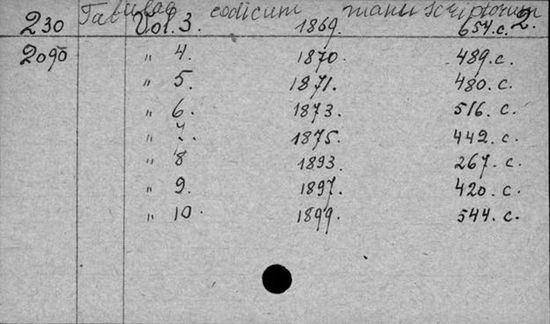 Tabulae codicum manu scriptorum
230 Vol. 3. 1869. 654.c. 2.
2090 " 4. 1870. 489.c.
" 5. 1871. 480.c.
" 6. 1873. 516.c.
" 7. 1875. 442.c.
" 8 1893. 267.c.
" 9. 1897. 420.c.
" 10. 1899. 544.c.